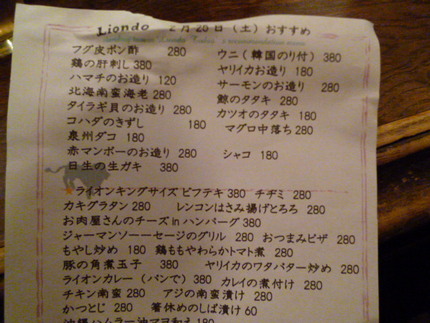 Liondo 2月28日(土)おすすめ
フグ皮ポン酢 280 ウニ(韓国のり付)380
鶏の肝刺し380 ヤリイカお造り 180
ハマチのお造り 120 サーモンのお造り 280
北海南蛮海老280 鯨のタタキ 280
タイラギ貝のお造り 280 カツオのタタキ 180
コハダのきずし 180 マグロ中落ち280
泉州ダコ 180
赤マンボーのお造り 280 シャコ 180
日生の生ガキ 380
ライオンキングサイズ ビフテキ 380 チヂミ 280
カキグラタン 280 レンコンはさみ揚げとろろ 280
お肉屋さんのチーズinハンバーグ380
ジャーマンソーセージのグリル 280 おつまみピザ 280
もやし炒め 180 鶏ももやわらかトマト煮 280
豚の角煮玉子 380 ヤリイカのワタバター炒め 280
ライオンカレー(パンで)380 カレイの煮付け 280
チキン南蛮 280 アジの南蛮漬け 280
かつとじ 280 箸休めのしば漬け60